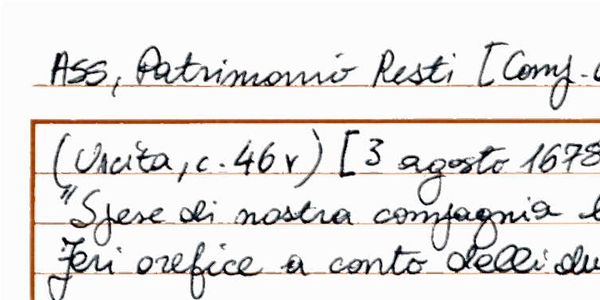 ASS, Patrimonio Resti [Comp.
(Uscita, c. 46v) [3 agosto 1678
"Spese di nostra compagnia
Feri orefice a conto delli du